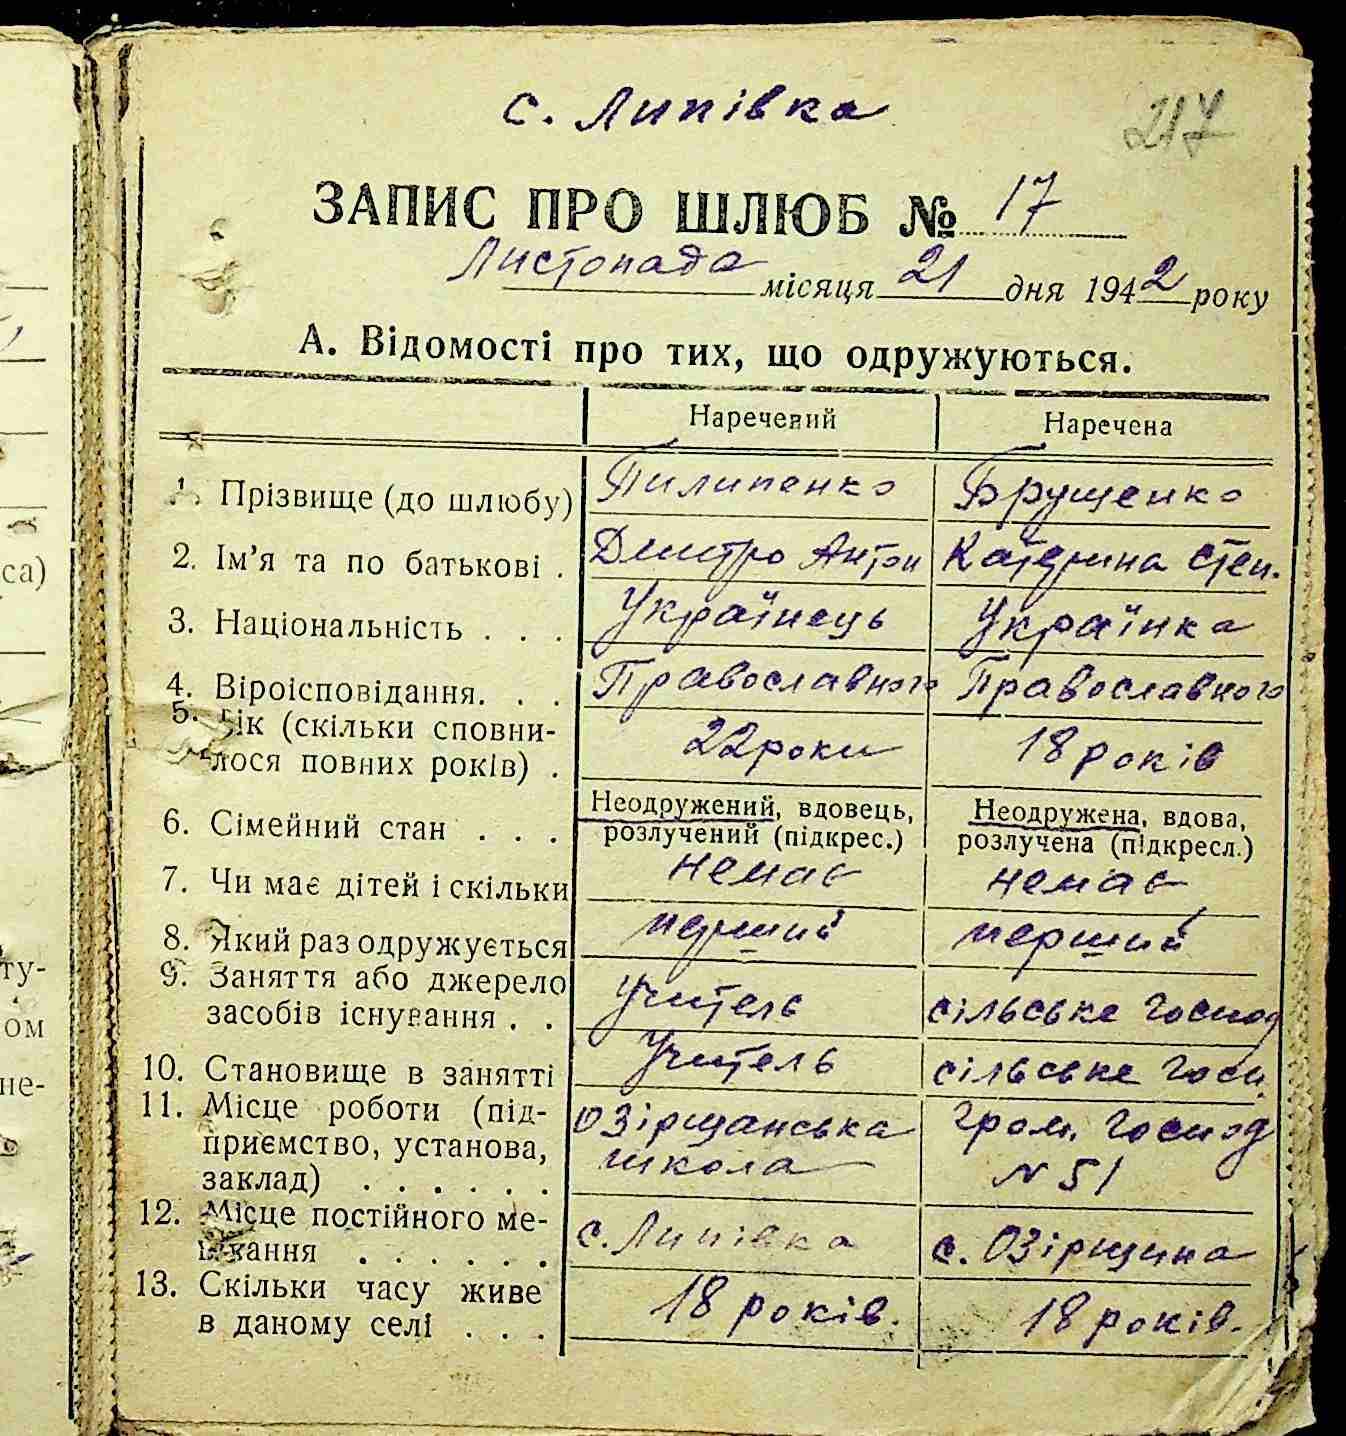 с. Липівка
217
ЗАПИС ПРО ШЛЮБ № 17
Листопада місяця 21 дня 1942 року
А. Відомості про тих, що одружуються.
Наречений Наречена
1. Прізвище (до шлюбу) Пилипенко Брущенко
2. Ім'я та по батькові . Дмитро Антон Катерина Степ.
3. Національність . . . Українець Українка
4. Віроісповідання. . . Православного Православного
5. Вік (скільки сповни-
лося повних років) . 22 роки 18 років
6. Сімейний стан . . . Неодружений, вдовець, розлучений (підкрес.) Неодружена, вдова, розлучена (підкресл.)
7. Чи має дітей і скільки немає немає
8. Який раз одружується перший перший
9. Заняття або джерело
засобів існування . . учитель сільське господ
10. Становище в занятті Учитель сільське госп
11. Місце роботи (під-
приємство, установа,
заклад) . . . . . . Озірщанська школа Гром. Господ N 51
12. Місце постійного ме-
шкання . . . . . . с. Липівка с. Озірщина
13. Скільки часу живе
в даному селі . . . 18 років. 18 років.
са)
ту-
ом
не-